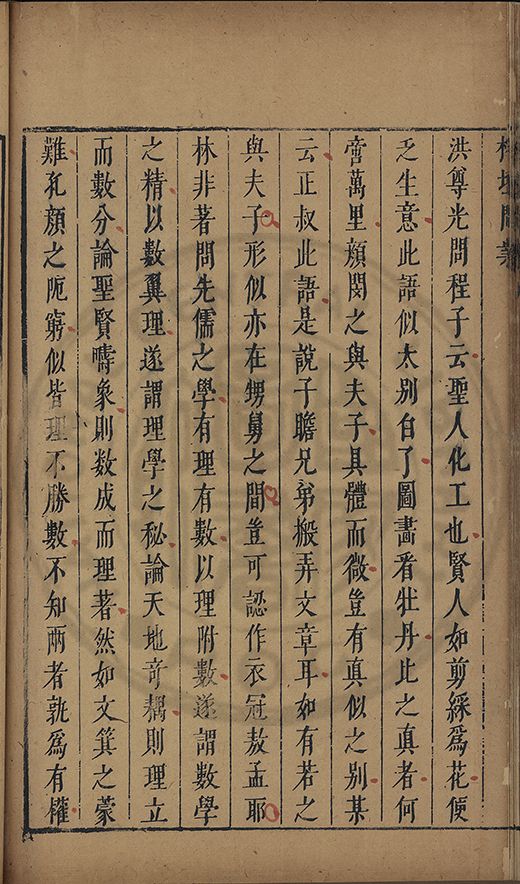 榕壇問業
洪尊光問程子云聖人化工也賢人如剪綵爲花便
乏生意此語似太別白了圖畫看牡丹比之真者何
啻萬里顏閔之與夫子具體而微豈有真似之別某
云正叔此語是說子瞻兄弟搬弄文章耳如有若之
與夫子形似亦在甥舅之間豈可認作衣冠敖孟耶
林非著問先儒之學有理有數以理附數遂謂數學
之精以數翼理遂謂理學之秘論天地奇耦則理立
而數分論聖賢疇象則数成而理著然如文箕之蒙
難孔顏之阨窮似皆理不勝數不知兩者孰爲有權